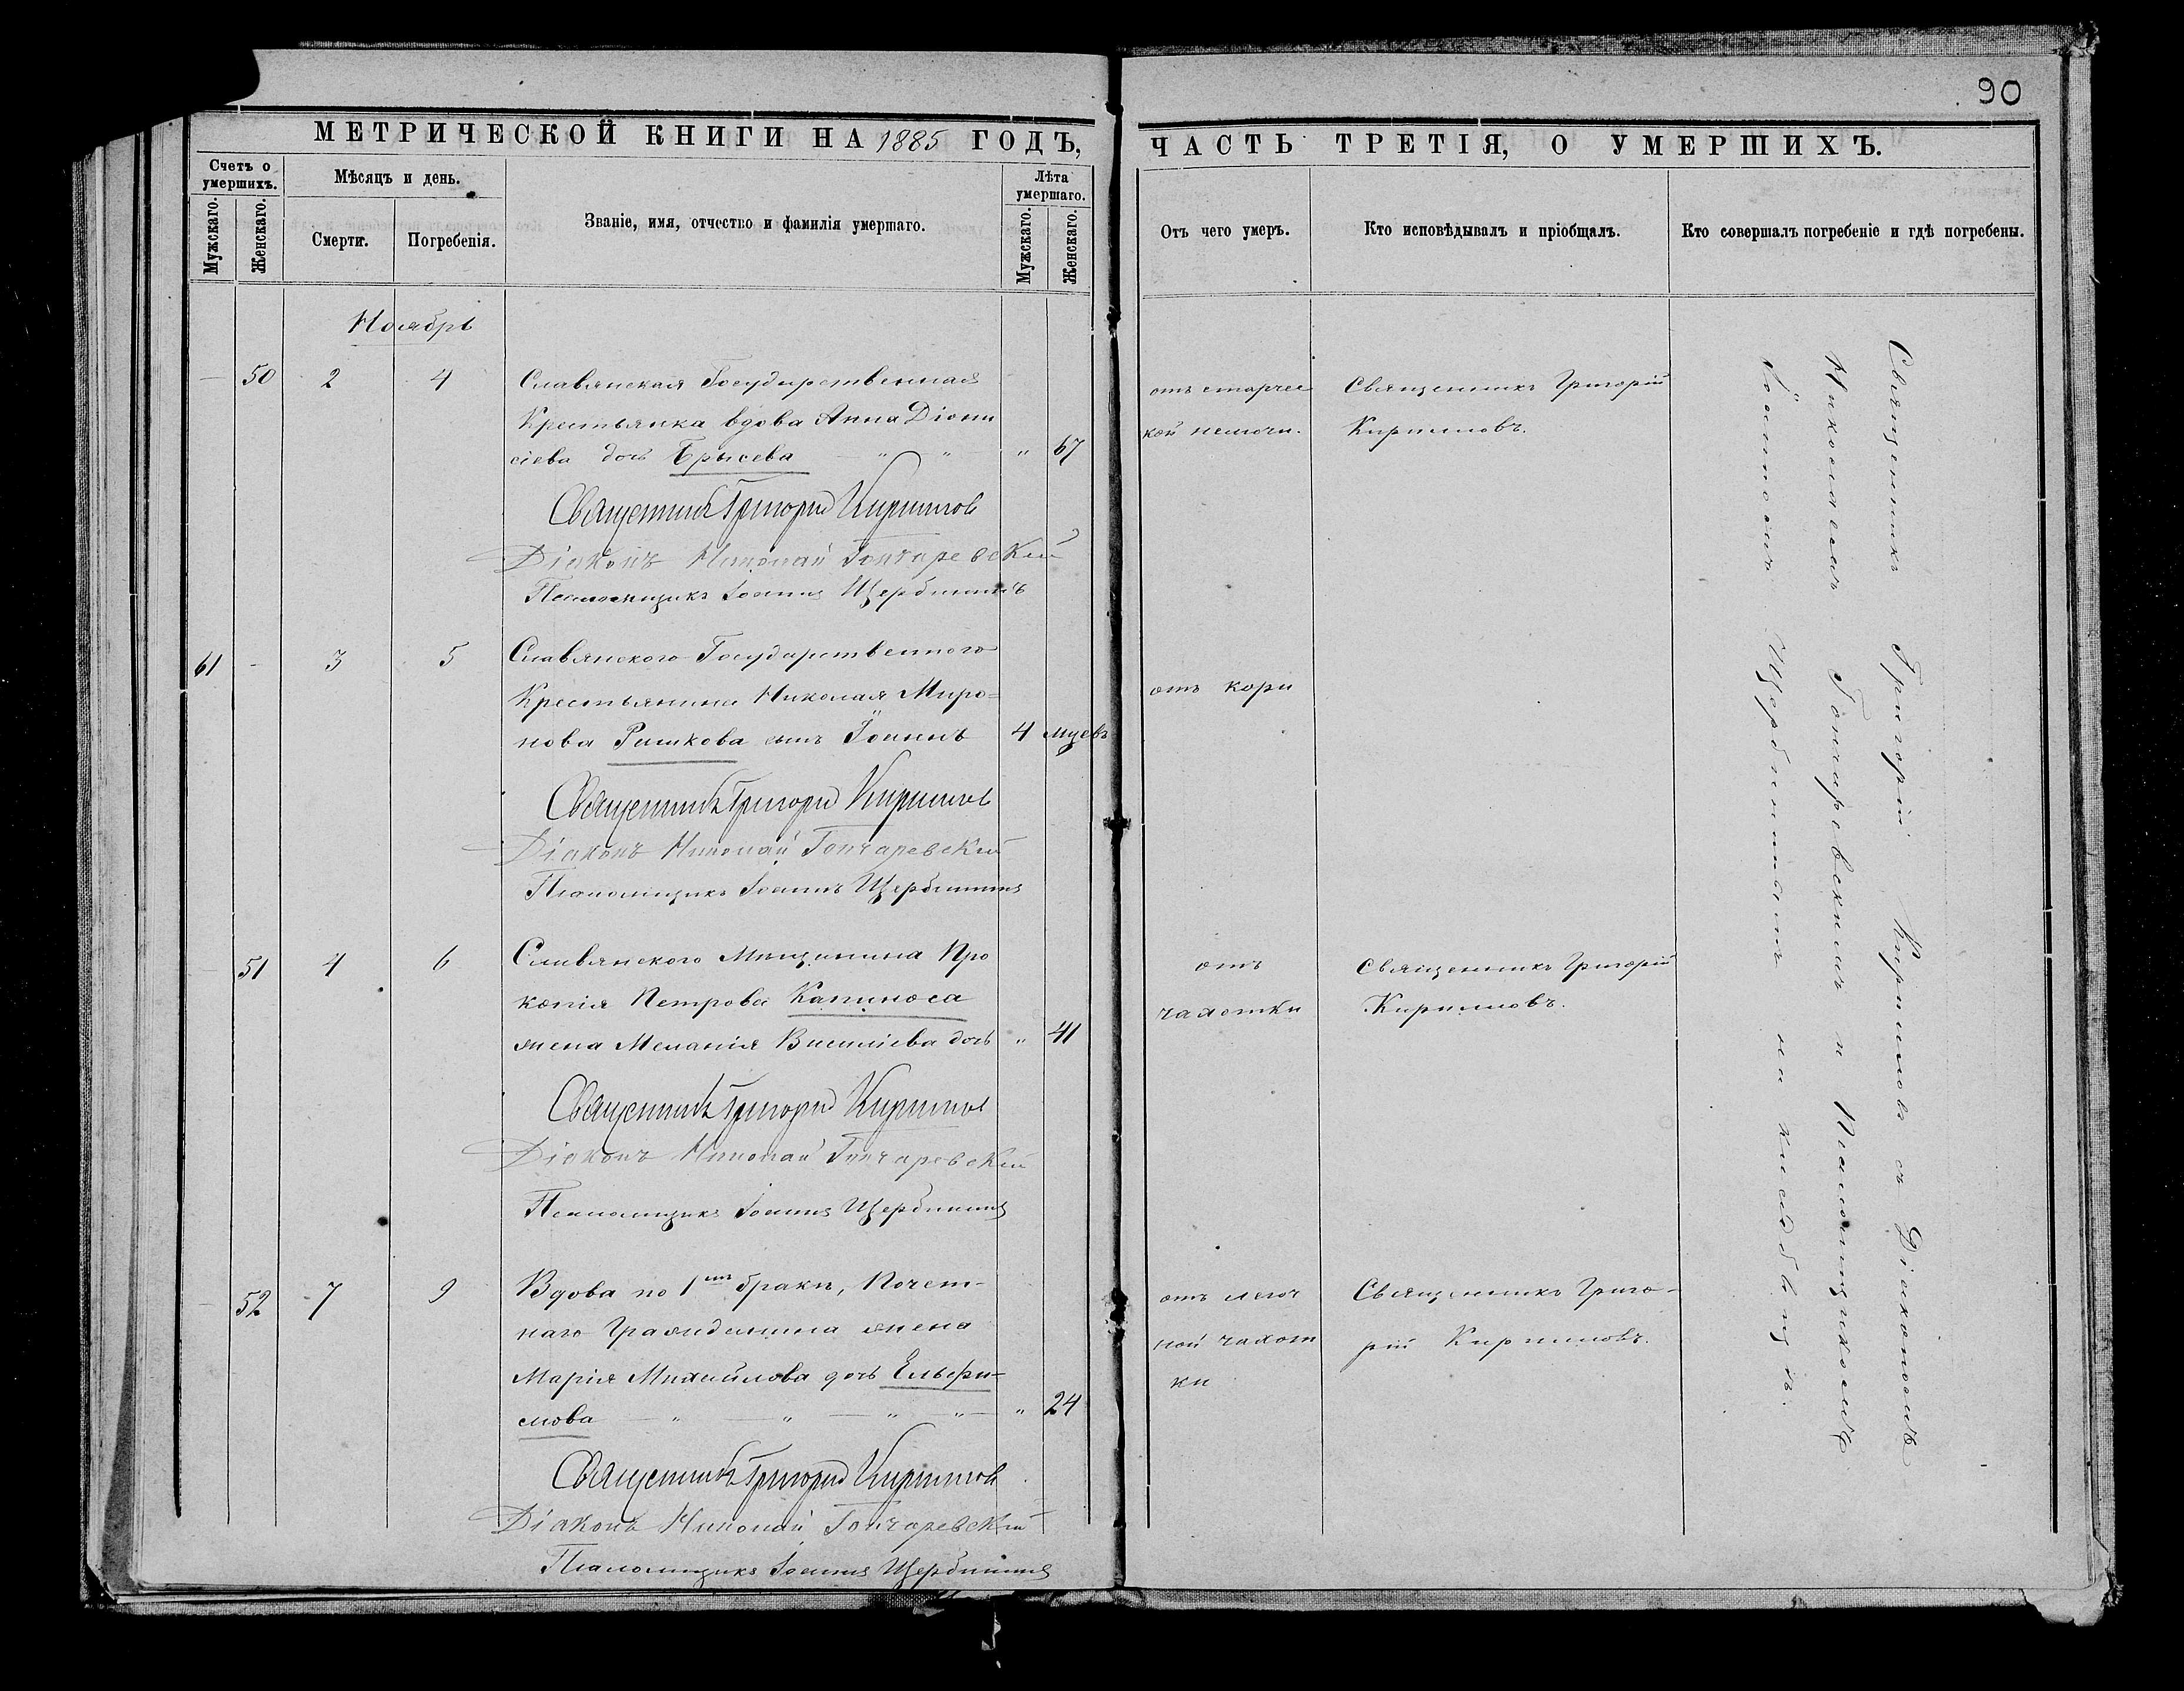 90
МЕТРИЧЕСКОЙ КНИГИ НА 1885 ГОДЪ,
ЧАСТЬ ТРЕТІЯ, О УМЕРШИХЪ.
Счетъ о умершихъ.
Мужскаго.
Женскаго.
Мѣсяцъ и день.
Смерти.
Погребенія.
Званіе, имя, отчество и фамилія умершаго.
Лѣта умершаго.
Мужскаго.
Женскаго.
Отъ чего умеръ.
Кто исповѣдывалъ и пріобщалъ.
Кто совершалъ погребеніе и гдѣ погребены.
Ноябрь
— 50 2 4 Славянская Государственная
Крестьянка вдова Анна Діони
сіева дочь Брысева — " — " " 67
отъ старчес
кой немочи.
Священникъ Григорій
Кирилловъ.
Священникъ Григорій Кирилловъ
Діаконъ Николай Гончаревскій
Псаломщикъ Іоаннъ Щербининъ
61 - 3 5 Славянского Государственного
Крестьянина Николая Миро=
нова сынъ Іоаннъ 4 мцевъ
отъ кори
Священникъ Григорій Кирилловъ
Діаконъ Николай Гончаревскій
Псаломщикъ Іоаннъ Щербининъ
— 51 4 6 Славянского Мѣщанина Про
копія Петрова Капиноса
жена Меланія Василіева дочь " 41
отъ
чахотки
Священникъ Григорій
Кирилловъ.
Священникъ Григорій Кирилловъ
Діаконъ Николай Гончаревскій
Псаломщикъ Іоаннъ Щербининъ
— 52 7 9 Вдова по 1мъ бракѣ, Почет-
наго Гражданина жена
Марія Михайлова дочь Ельфи-
мова — " — " — " — " — " 24
отъ легоч
ной чахот
ки
Священникъ Григо-
рій Кирилловъ.
Священникъ Григорій Кирилловъ
Діаконъ Николай Гончаревскій
Псаломщикъ Іоаннъ Щербининъ
Священникъ Григорій Кирилловъ съ Діакономъ
Николаемъ Гончаревскимъ и Псаломщикомъ
Іоанномъ Щербининымъ на кладбищѣ.